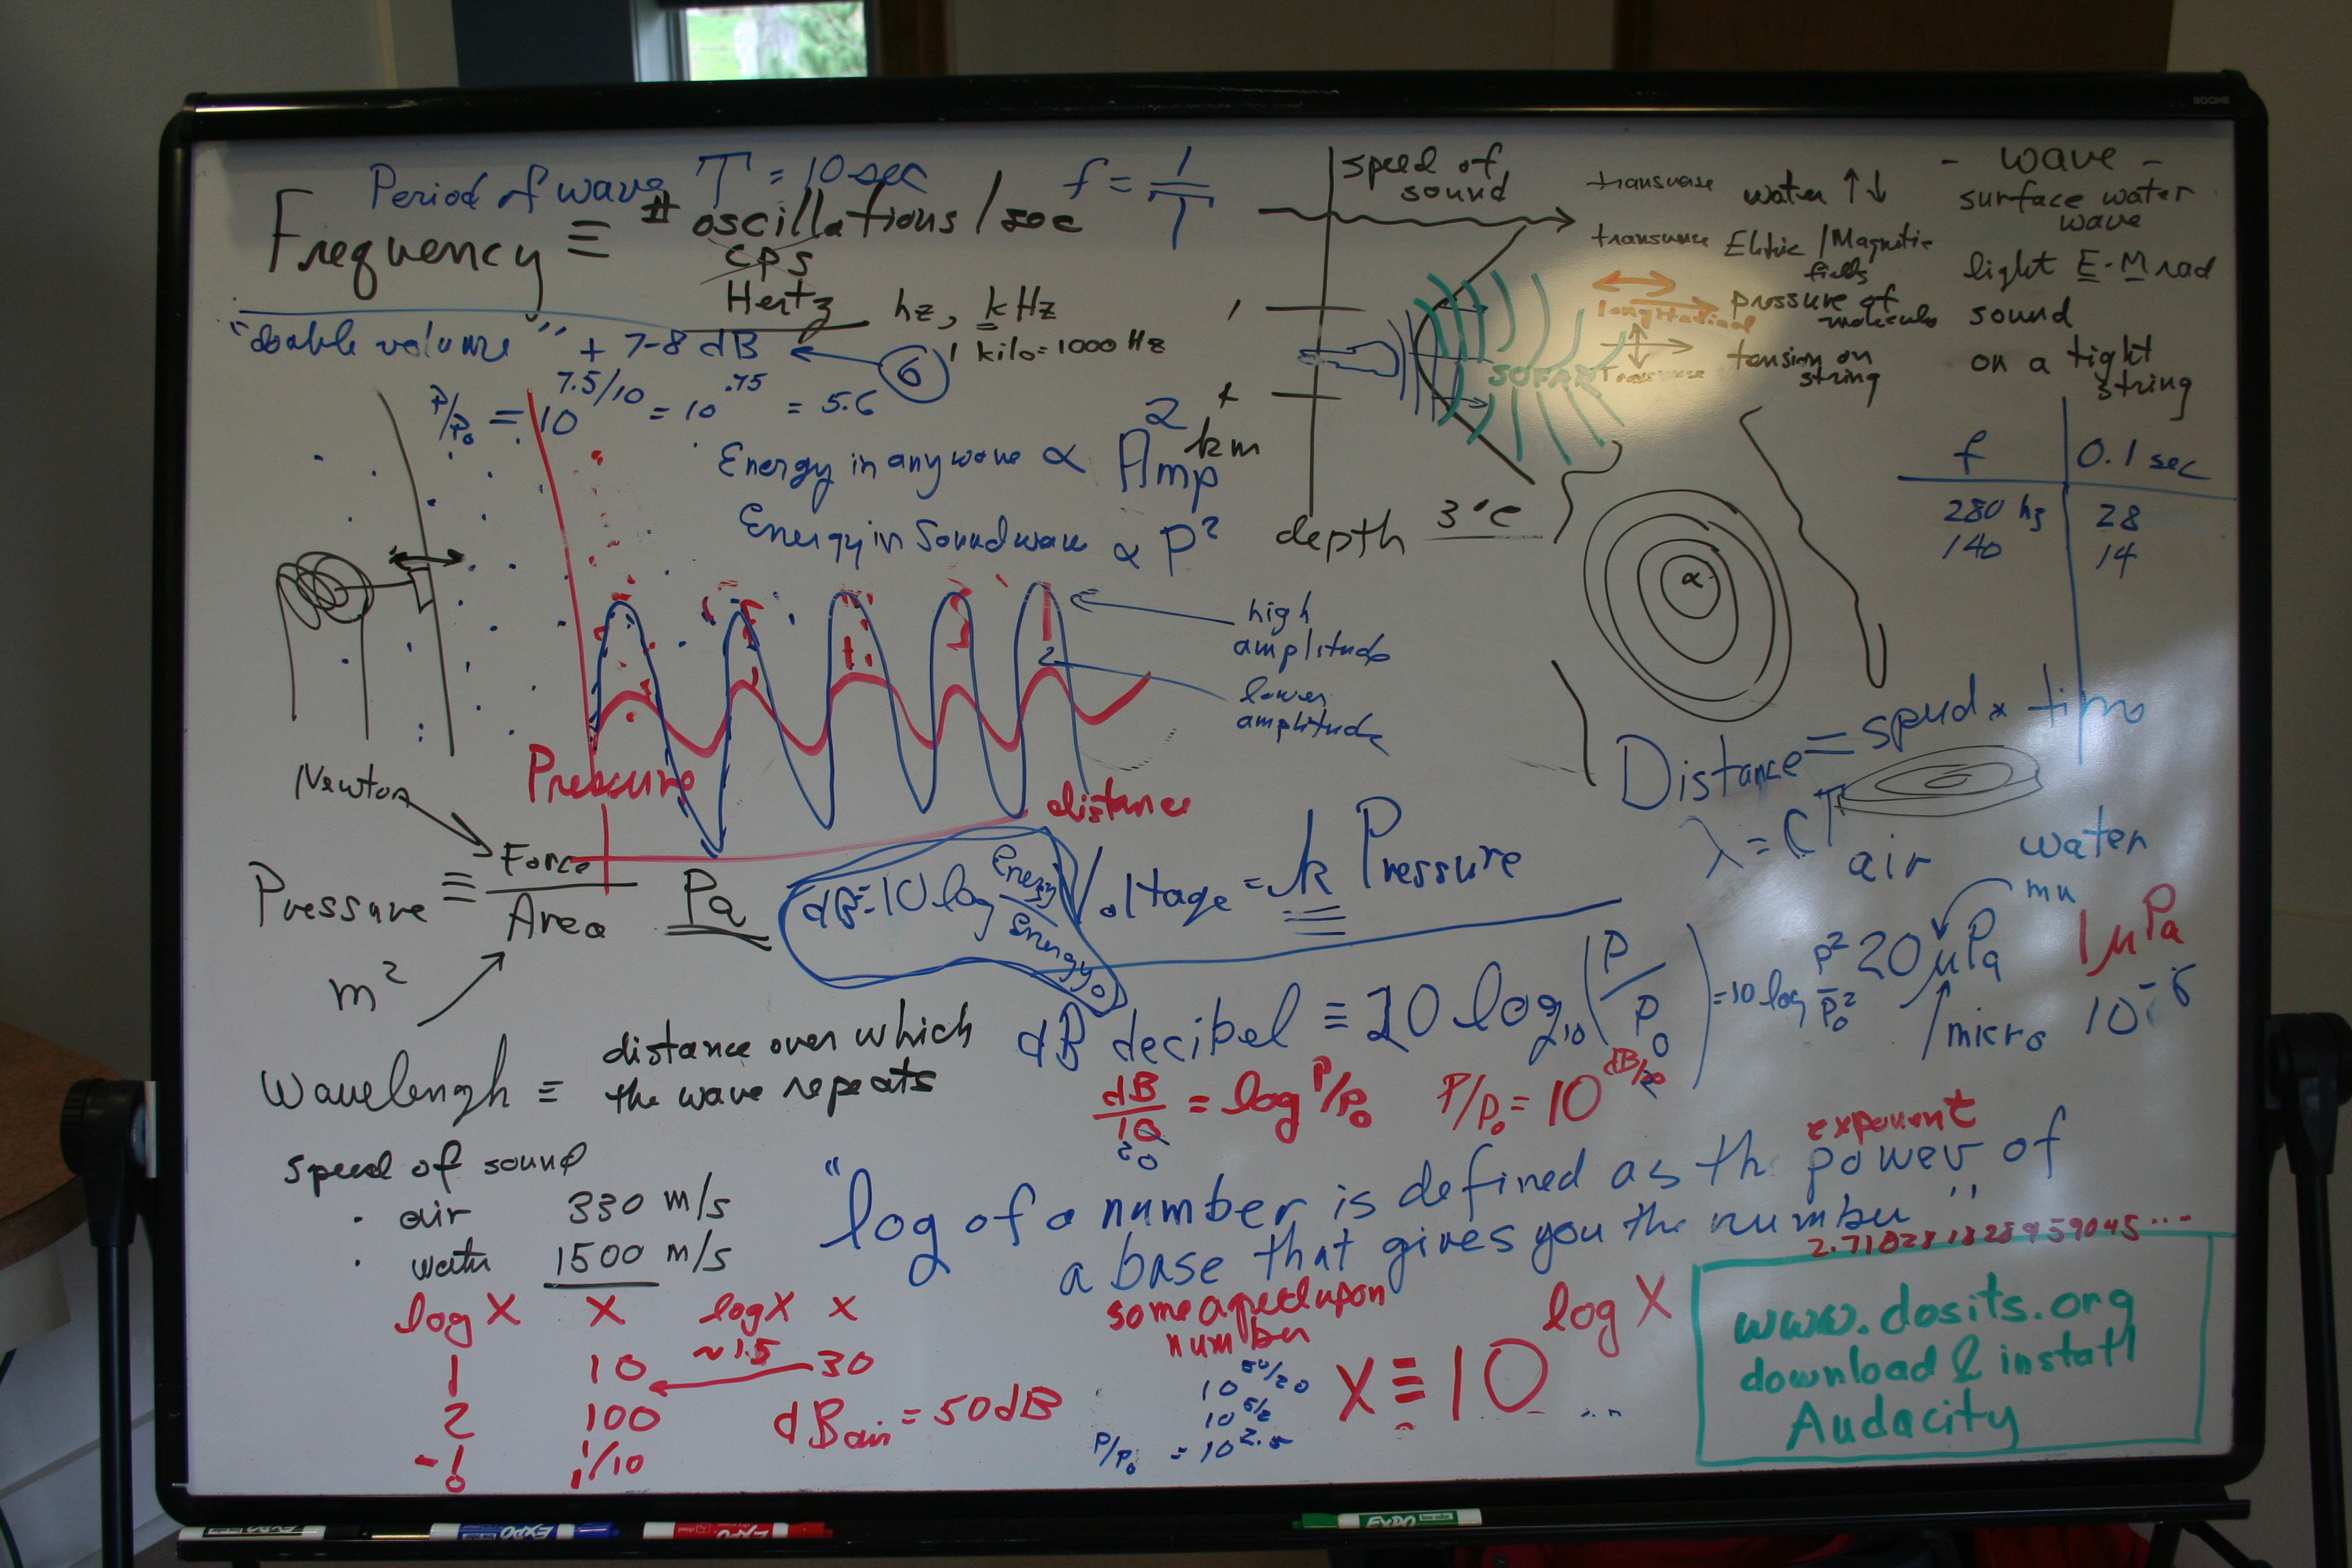 BOONE
Period of wave T = 10 sec f = 1/T
Frequency ≡ # oscillations / sec
CPS
Hertz
hz, kHz
1 kilo = 1000 Hz
"double volume" + 7-8 dB
6
P/P0 = 10^7.5/10 = 10^.75 = 5.6
Energy in any wave ∝ Amp²
Energy in Sound wave ∝ P²
high
amplitude
lower
amplitude
Pressure
distance
speed of
sound
1
km
depth
3°C
SOFAR
- wave -
transverse water ↑↓ surface water
wave
transverse Eletric / Magnetic
fields
light E-M rad
longitudinal pressure of
molecules
sound
Transverse tension on
string
on a tight
string
f 0.1 sec
280 hz 28
140 14
Distance = speed x time
λ = CT
Newton
Pressure ≡ Force / Area Pa
m²
dB = 10 log Energy / Energy0
Voltage = k Pressure
air water
mu
dB decibel ≡ 20 log10 (P / P0) = 10 log P² / P0²
20 μPa 1 μPa
micro 10^-6
Wavelengh ≡ distance over which
the wave repeats
dB / 10 = log P/P0 P/P0 = 10^dB/20
20
exponent
"log of a number is defined as the power of
a base that gives you the number"
some agreed upon
number
speed of sound
· air 330 m/s
· water 1500 m/s
log X X log X X
1 10 ~1.5 30
2 100
-1 1/10
dBair = 50 dB
10^50/20
10^5/2
P/P0 = 10^2.5
X ≡ 10^log X
www.dosits.org
download & install
Audacity
EXPO
EXPO
EXPO
EXPO